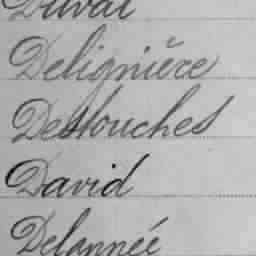 Duval
Delignière
Destouches
David
Delannée